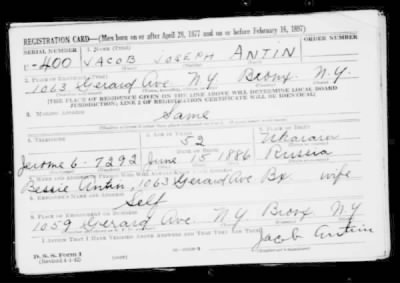 REGISTRATION CARD—(Men born on or after April 28, 1877 and on or before February 16, 1897)
SERIAL NUMBER 1. NAME (Print)
U-400 JACOB JOSEPH ANTIN
2. PLACE OF RESIDENCE (Print)
1063 Gerard Ave. N.Y. Bronx. N.Y.
[THE PLACE OF RESIDENCE GIVEN ON THE LINE ABOVE WILL DETERMINE LOCAL BOARD
JURISDICTION; LINE 2 OF REGISTRATION CERTIFICATE WILL BE IDENTICAL]
3. MAILING ADDRESS
Same
4. TELEPHONE 5. AGE IN YEARS 6. PLACE OF BIRTH
DATE OF BIRTH
Jerome 6-7292 June 15 1886 Russia
Bessie Antin, 1063 Gerard Ave Bx wife
8. EMPLOYER'S NAME AND ADDRESS
Self
9. PLACE OF EMPLOYMENT OR BUSINESS
1059 Gerard Ave. N.Y. Bronx N.Y.
I AFFIRM THAT I HAVE VERIFIED ABOVE ANSWERS AND THAT THEY ARE TRUE.
D. S. S. Form 1
(Revised 4-1-42) Jacob Antin